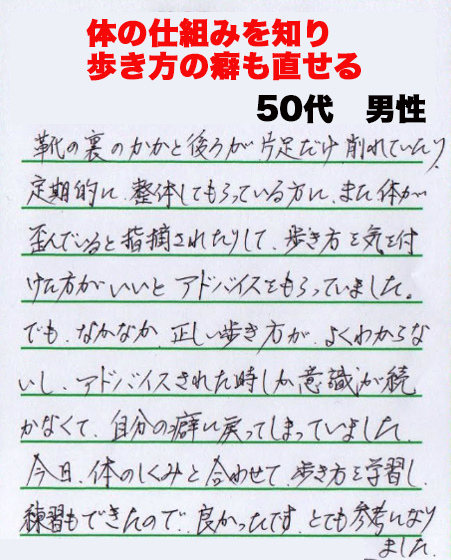 体の仕組みを知り
歩き方の癖も直せる
50代 男性
靴の裏のかかと後ろが、片足だけ、削れていたり、
定期的に、整体してもらっている方に、また体が
歪んでいると指摘されたりして、歩き方を気を付
けた方がいいと アドバイスをもらっていました。
でも、なかなか、正しい歩き方が、よくわからな
いし、アドバイスされた時しか意識が続
かなくて、自分の癖に戻ってしまっていました。
今日、体のしくみと合わせて、歩き方を学習し、
練習もできたので、良かったです。とても参考になり
ました。